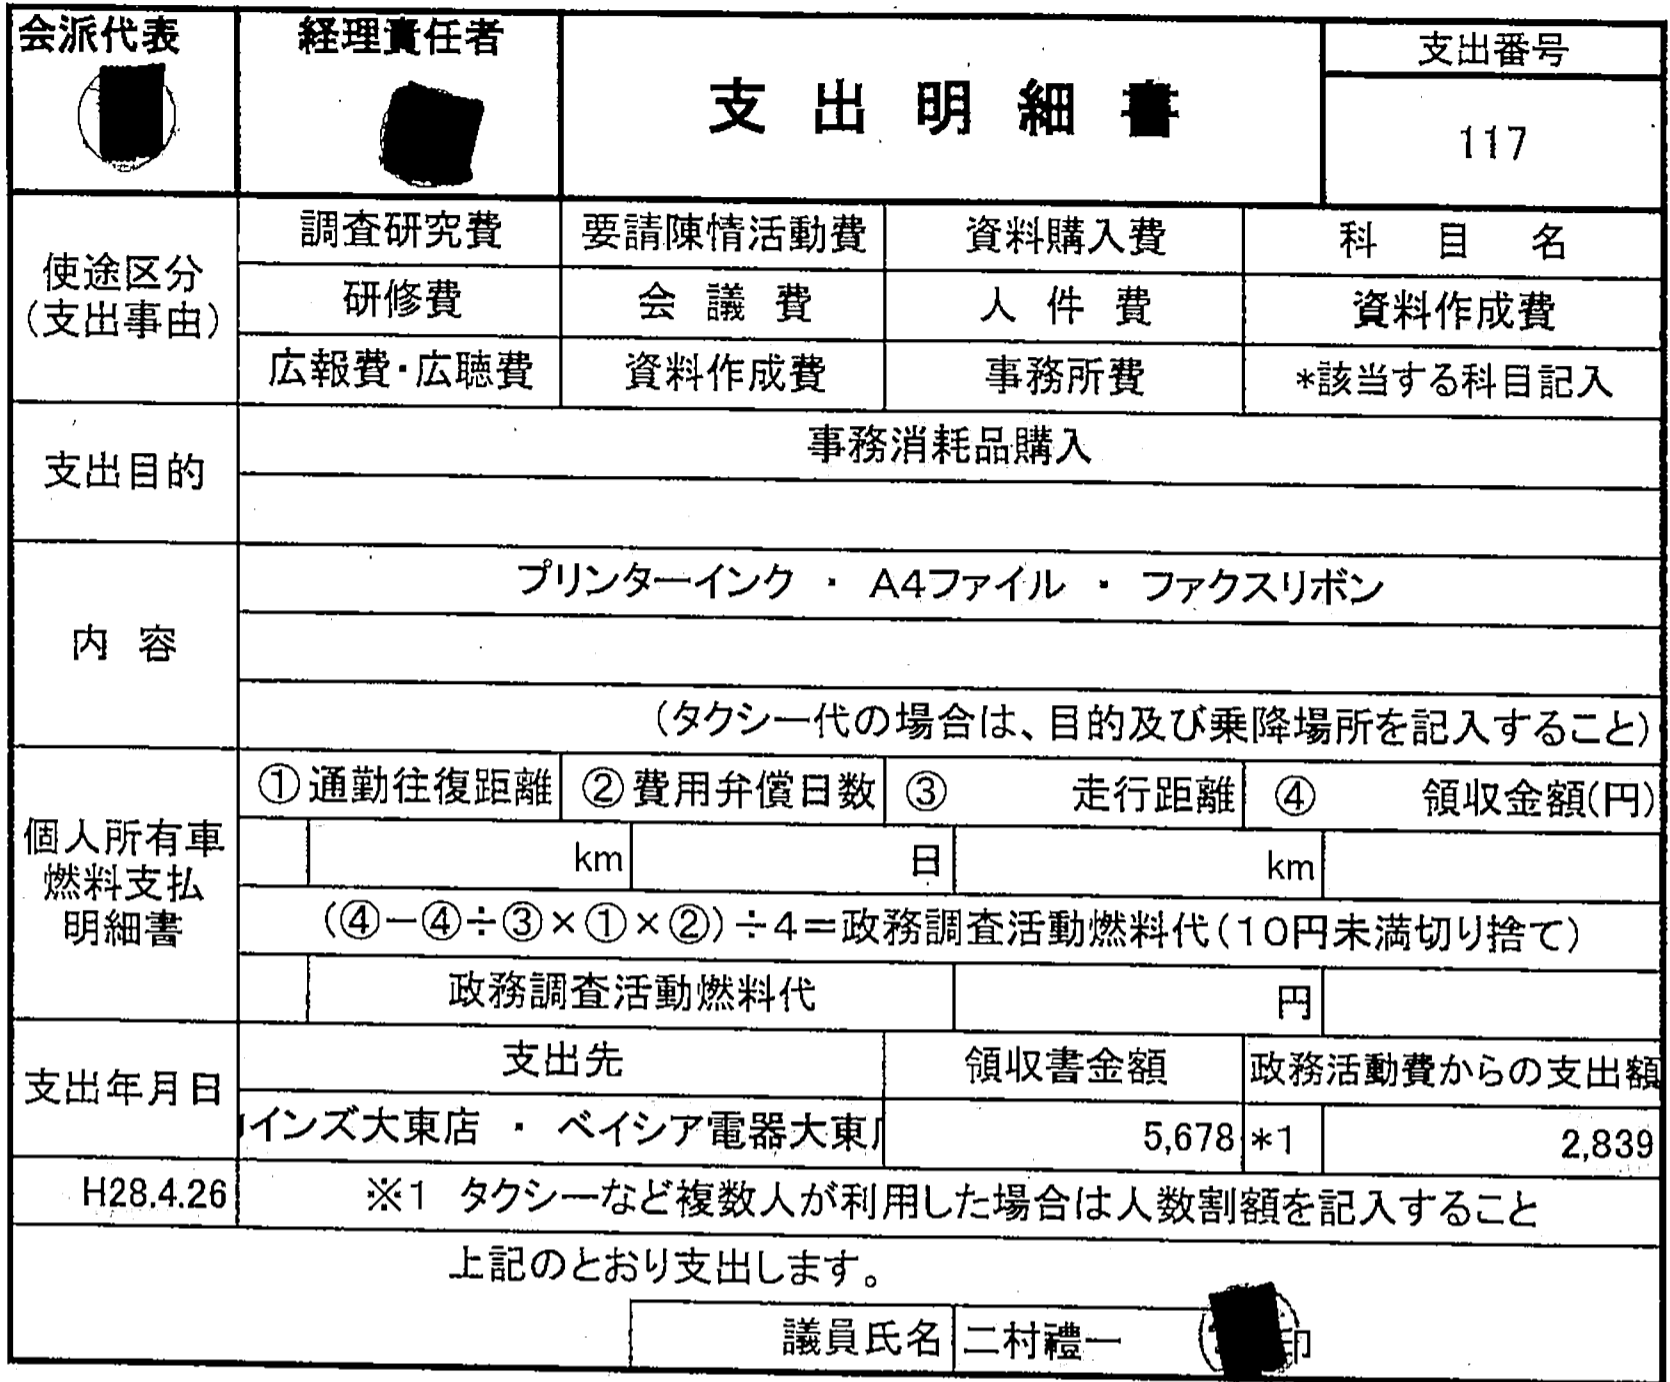 会派代表
経理責任者
支出明細書
支出番号
117
使途区分
(支出事由)
調査研究費 要請陳情活動費 資料購入費 科目名
研修費 会議費 人件費 資料作成費
広報費・広聴費 資料作成費 事務所費 *該当する科目記入
支出目的
事務消耗品購入
内容
プリンターインク ・ A4ファイル ・ ファクスリボン
(タクシー代の場合は、目的及び乗降場所を記入すること)
個人所有車
燃料支払
明細書
①通勤往復距離 ②費用弁償日数 ③ 走行距離 ④ 領収金額(円)
km 日 km
(④-④÷③×①×②)÷4=政務調査活動燃料代(10円未満切り捨て)
政務調査活動燃料代 円
支出年月日
支出先 領収書金額 政務活動費からの支出額
インズ大東店 ・ ベイシア電器大東 5,678 *1 2,839
H28.4.26 ※1 タクシーなど複数人が利用した場合は人数割額を記入すること
上記のとおり支出します。
議員氏名 二村禮一 印